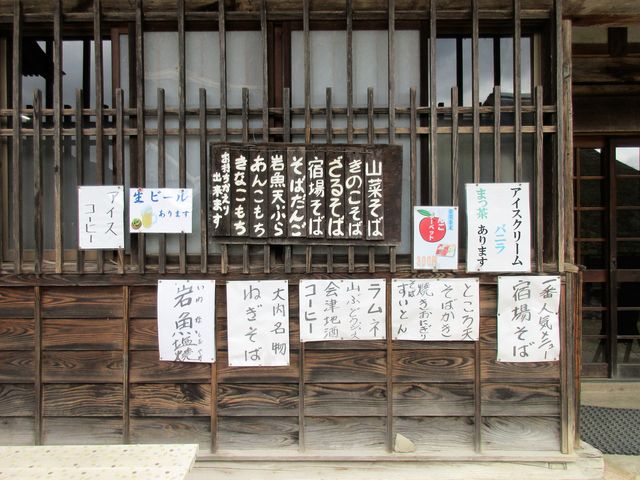 山菜そば
きのこそば
ざるそば
宿場そば
そばだんご
岩魚天ぷら
あんこもち
きなこもち
お持ちかえり
出来ます
アイス
コーヒー
生ビール
あります
アイスクリーム
バニラ
まっ茶
あります
一番人気メニュー
宿場そば
ところ天
そばかき
焼きおにぎり
そば
すいとん
ラムネ
山ぶどうジュース
会津地酒
コーヒー
大内名物
ねぎそば
いわな
岩魚塩焼